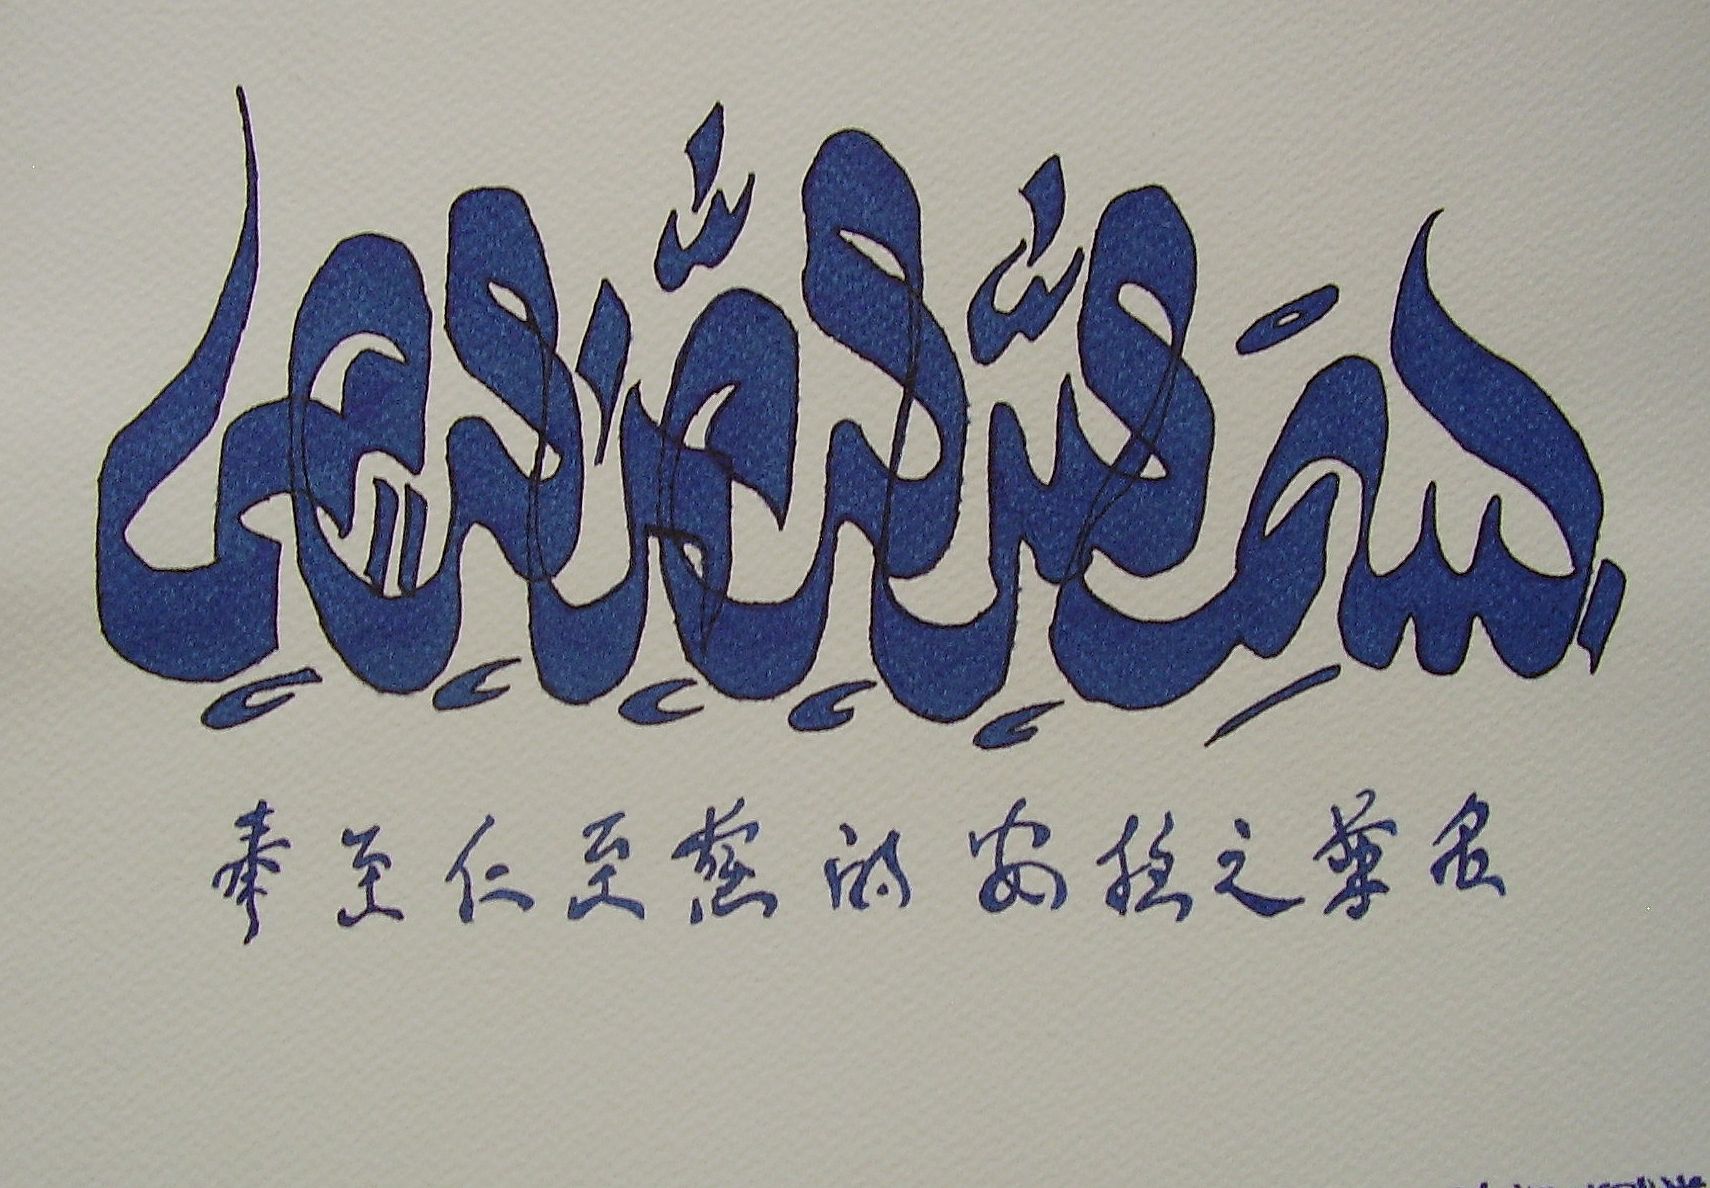 بِسْمِ اللَّهِ الرَّحْمَٰنِ الرَّحِيمِ
奉至仁至慈的安拉之尊名